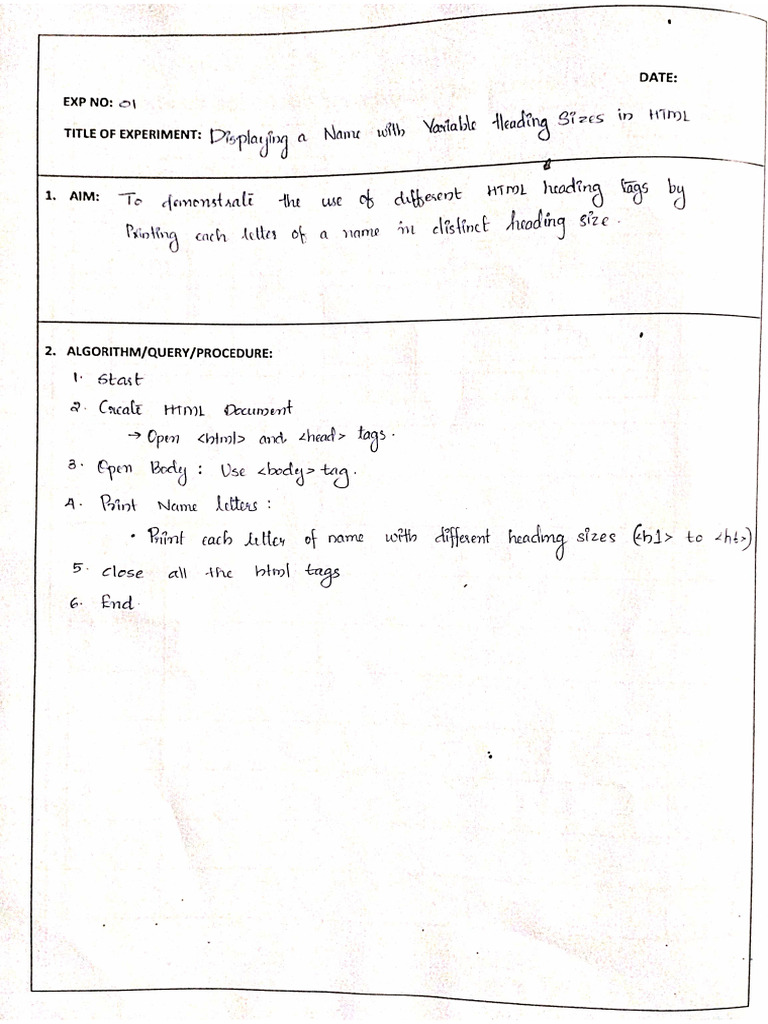 DATE:
EXP NO: 01
TITLE OF EXPERIMENT: Displaying a Name with Variable Heading Sizes in HTML
1. AIM: To demonstrate the use of different HTML heading tags by
Printing each letter of a name in distinct heading size.
2. ALGORITHM/QUERY/PROCEDURE:
1. Start
2. Create HTML Document
→ Open <html> and <head> tags.
3. Open Body : Use <body> tag.
4. Print Name letters :
• Print each letter of name with different heading sizes (<h1> to <ht>)
5. close all the html tags
6. End.